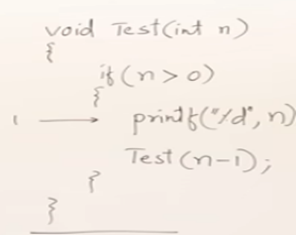 void Test(int n)
{
if(n>0)
{
1 → printf("%d", n)
Test(n-1);
}
}